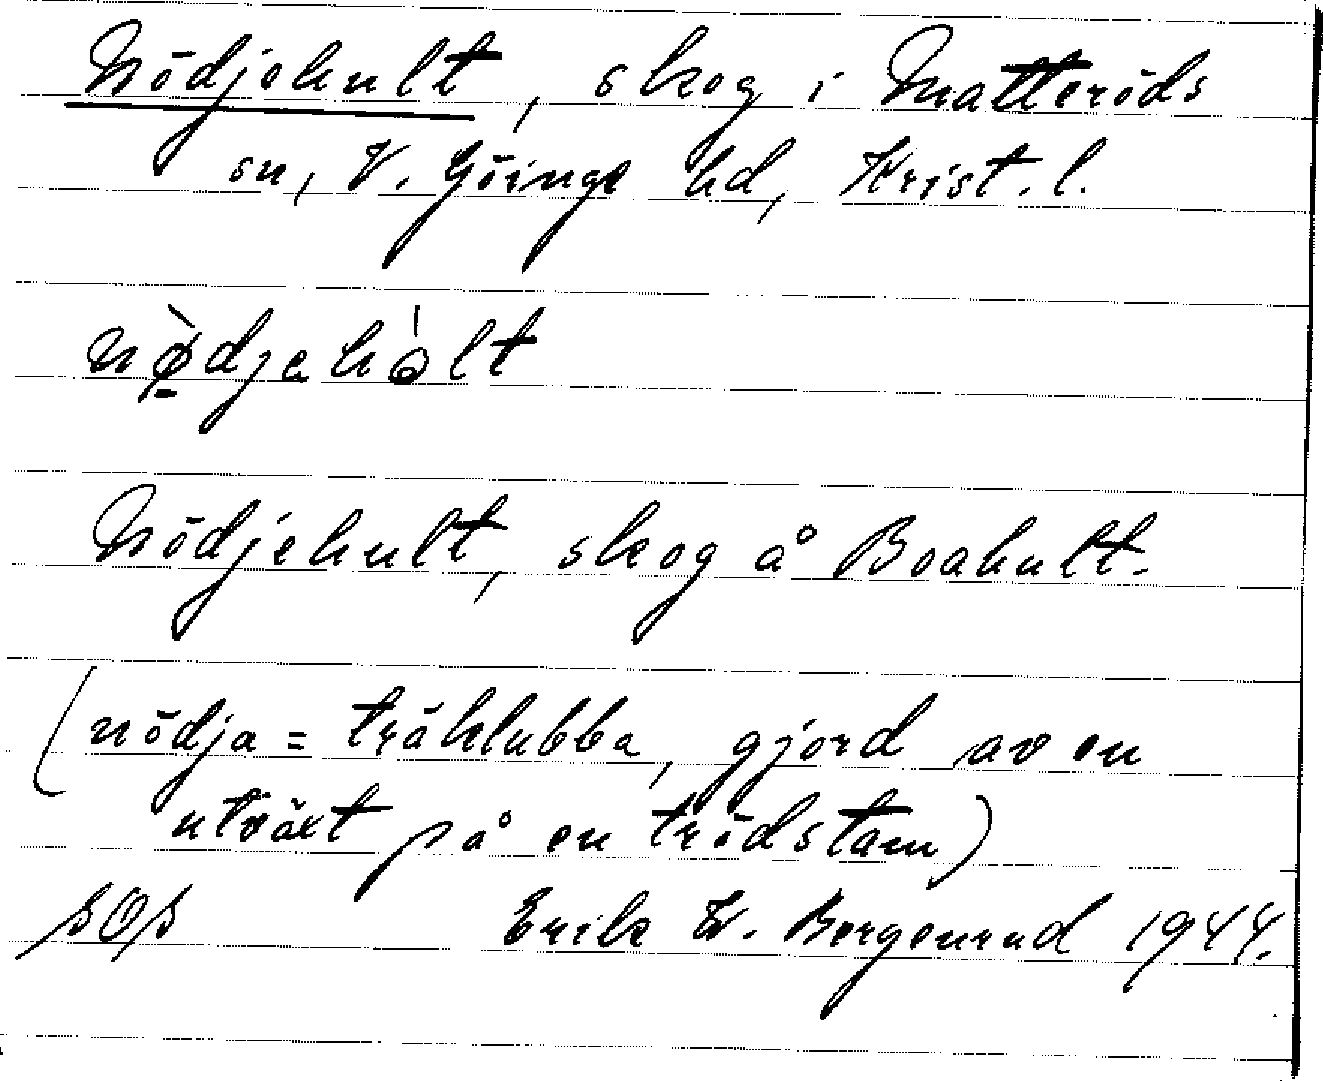 Nödjehult, skog i Matteröds
sn, V. Göinge hd, Krist. l.
nø̠̀djahòlt
Nödjehult, skog å Boahult.
(nödja = träklubba, gjord av en
utväxt på en trädstam)
SOS Erik W. Bergenrud 1944.